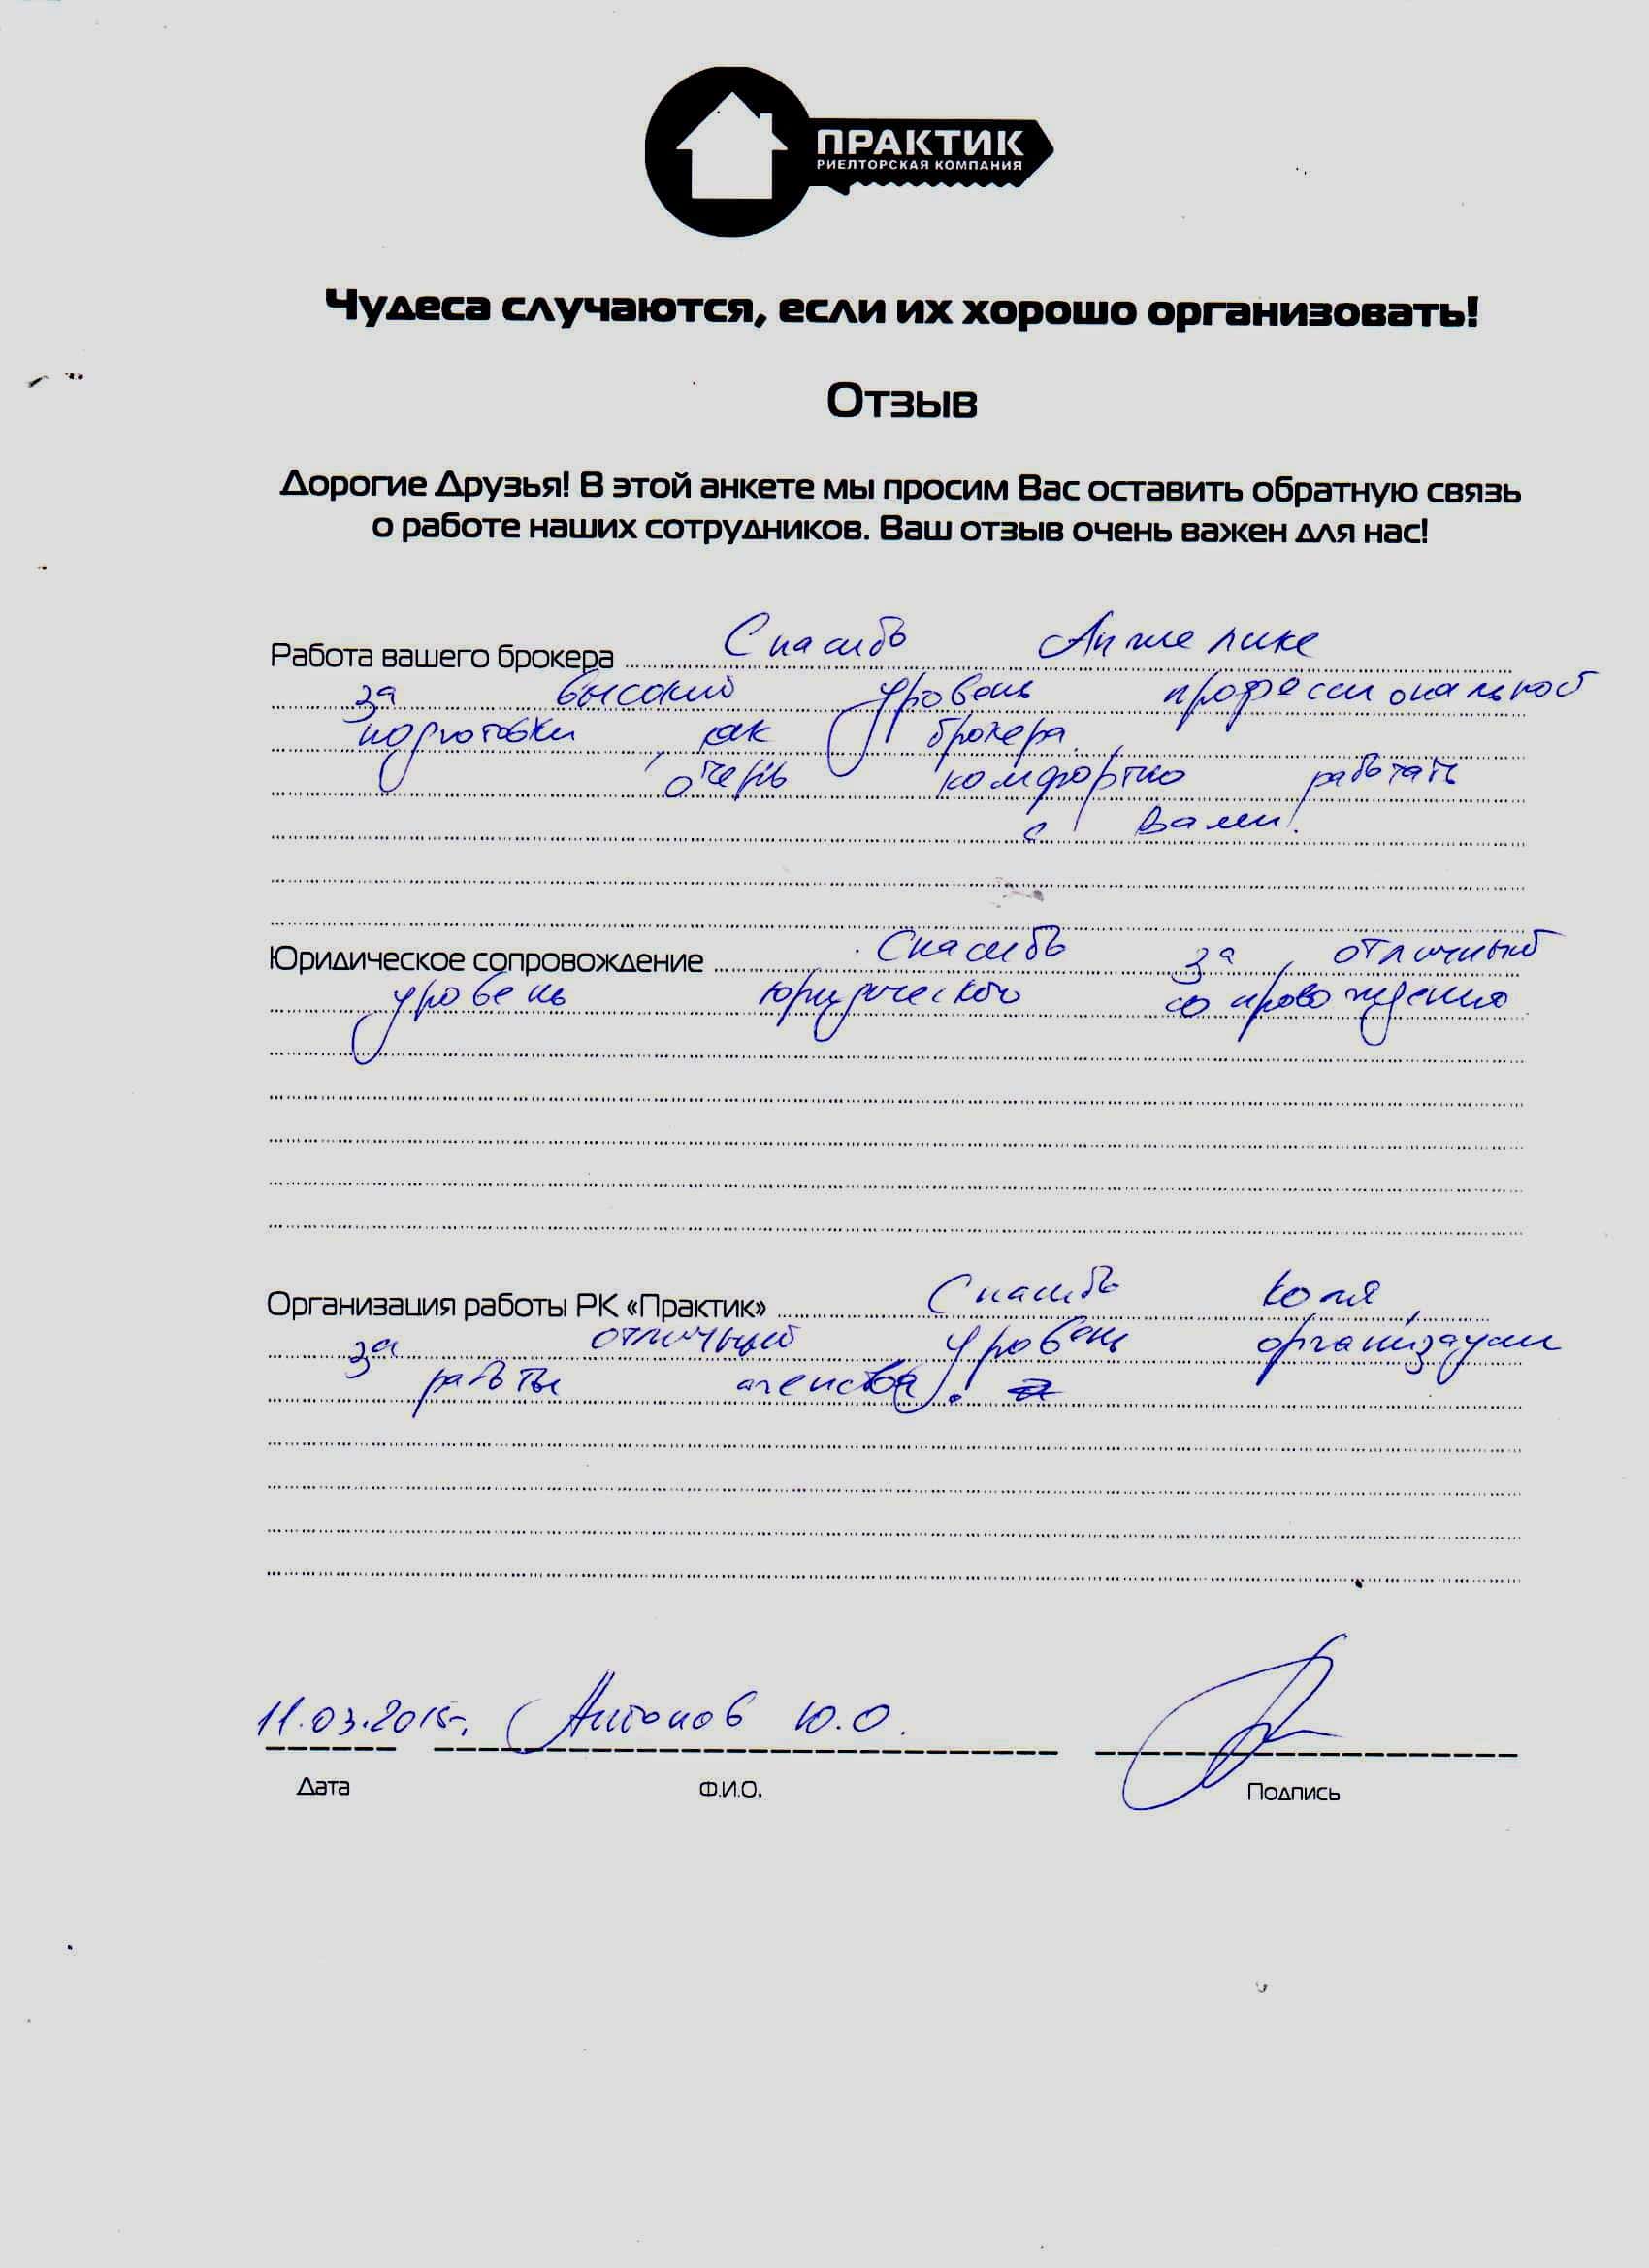 ПРАКТИК
РИЕЛТОРСКАЯ КОМПАНИЯ
Чудеса случаются, если их хорошо организовать!
Отзыв
Дорогие Друзья! В этой анкете мы просим Вас оставить обратную связь
о работе наших сотрудников. Ваш отзыв очень важен для нас!
Работа вашего брокера Спасибо Анжелике
за высокий уровень профессиональной
подготовки, как брокера.
очень комфортно работать
с Вами!
Юридическое сопровождение Спасибо за отличный
уровень юридического сопровождения
Организация работы РК «Практик» Спасибо Коля,
за отличный уровень организации
работы агенства!
11.03.2015г. Антонов Ю.О.
Дата Ф.И.О. Подпись